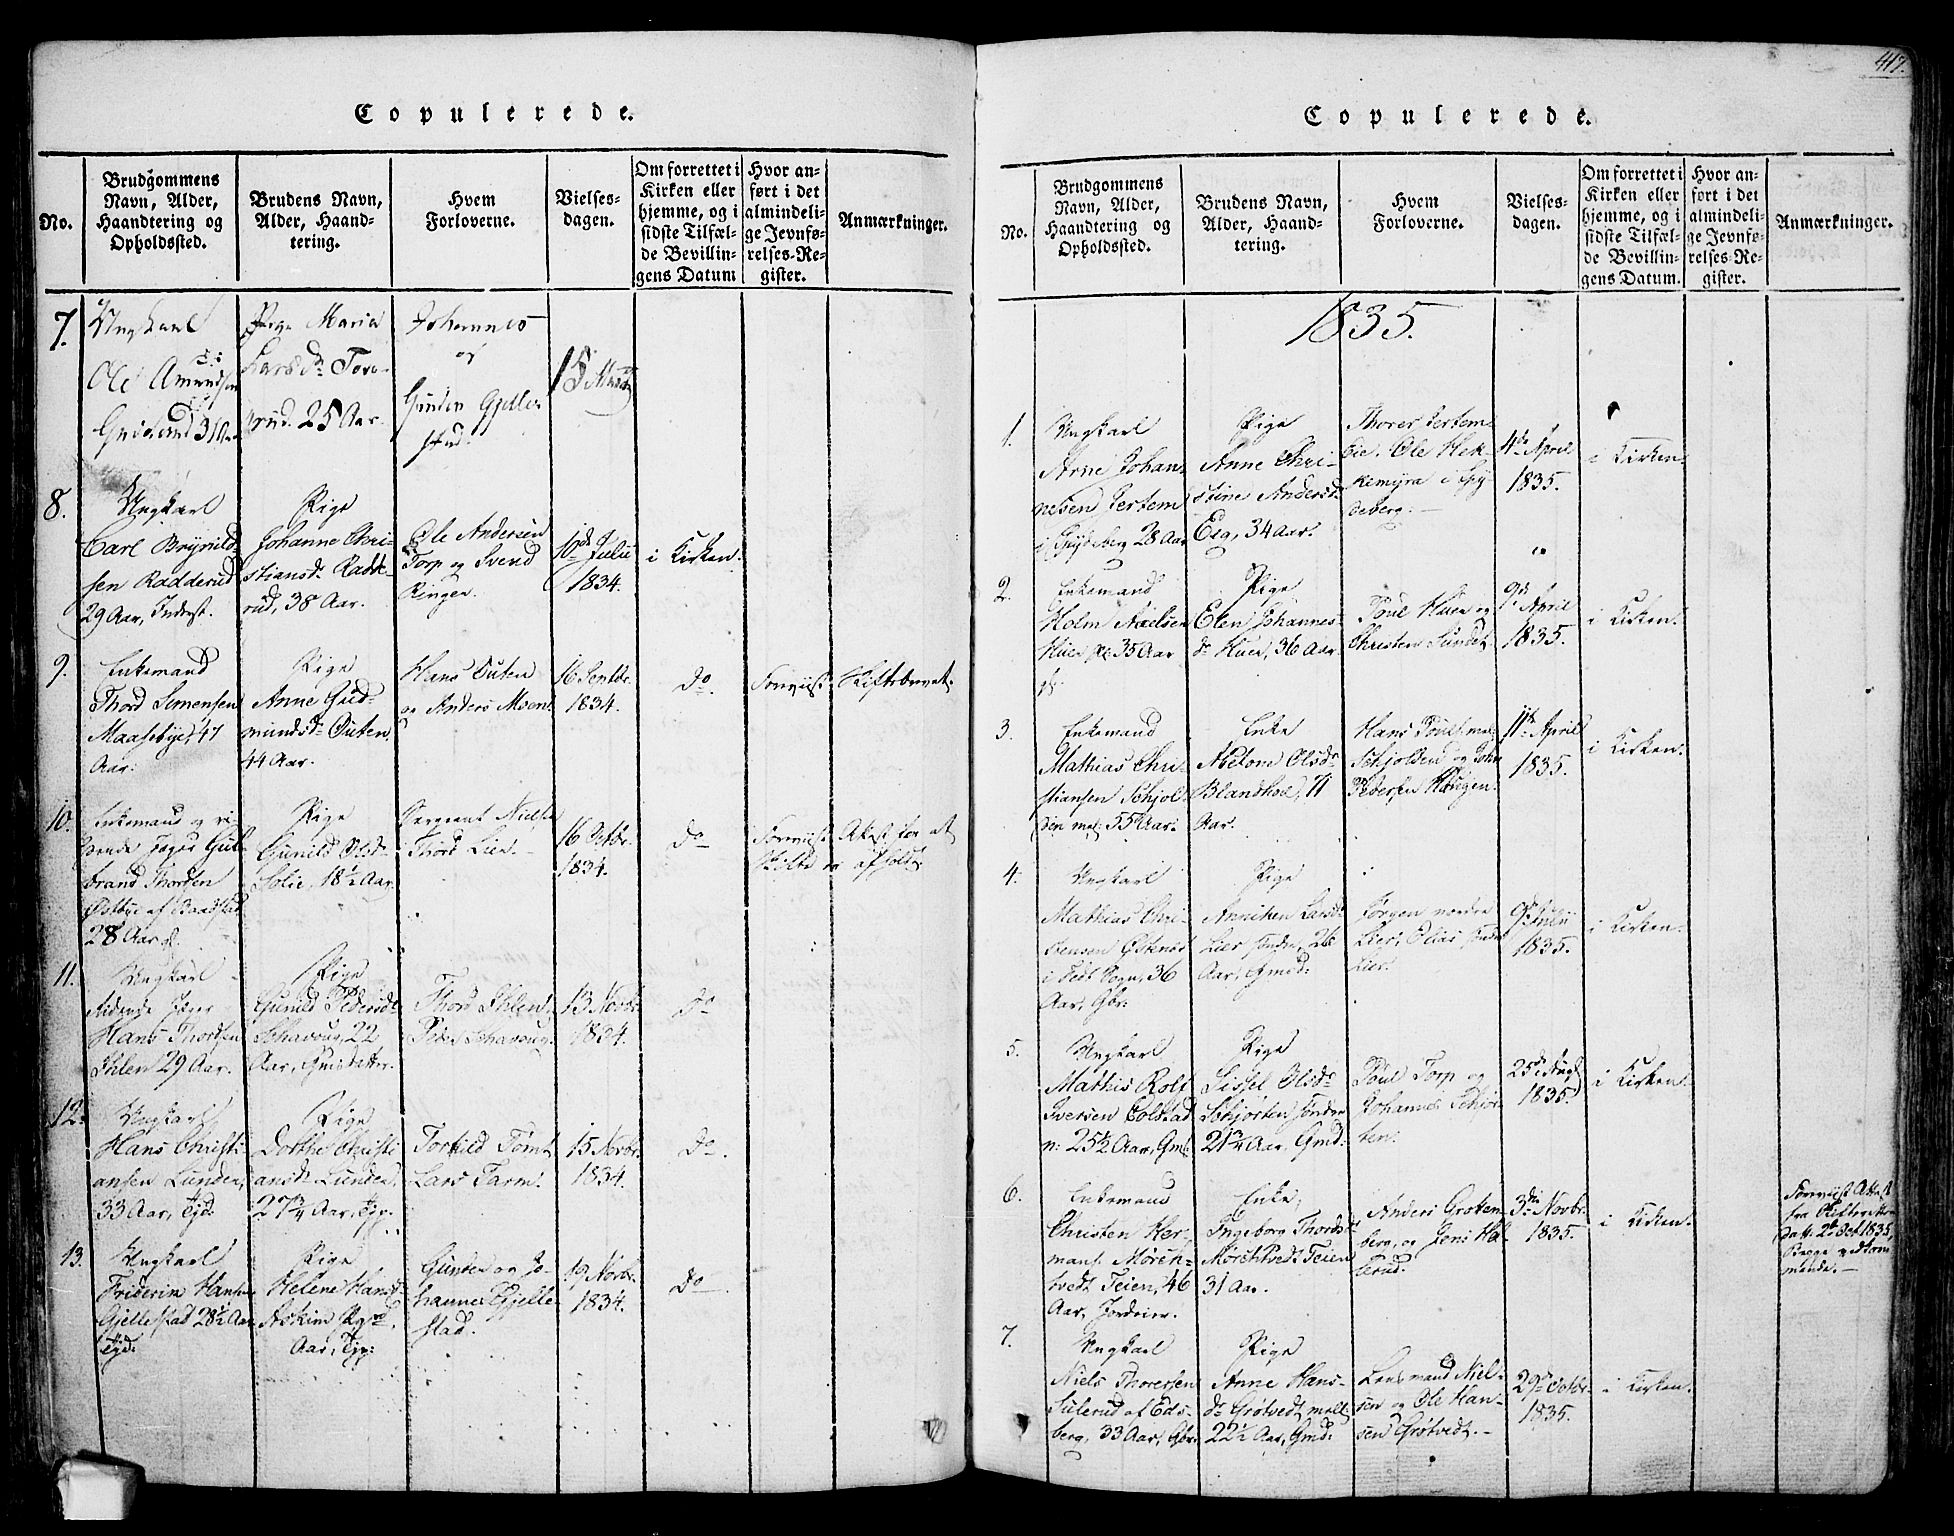 Copulerede.
No.
Brudgommens
Navn, Alder,
Haandtering og
Opholdssted.
Brudens Navn,
Alder, Haand-
tering.
Hvem
Forloverne.
Vielses-
dagen.
Om forrettet i
Kirken eller
hjemme, og i
sidste Tilfæl-
de Bevillin-
gens Datum
Hvor an-
ført i det
almindeli-
ge Jevnfø-
relses-Re-
gister.
Anmærkninger.
7.
Ungkarl
Ole Amundsen
31 Aar
Pige Maria
Larsdr
25 Aar.
Johannes
og
Gunder Gjelle-
stad.
15
8.
Ungkarl
Carl Brynild-
sen Radderud
29 Aar, Inderst.
Pige
Johanne Chri-
stiansdr Radde-
rud, 38 Aar.
Ole Andersen
Torp og Svend
Ringen.
10de Julii
1834.
i Kirken.
9.
Enkemand
Thord Simensen
Maasebye, 47
Aar.
Pige
Anne Gud-
mundsdr Outen,
44 Aar.
Hans Outen
og Anders Moen.
16 Septbr.
1834.
Do.
Forviist Skiftebrevet.
10.
Enkemand og ri-
dende Jæger Gul-
brand Thordsen
Østbye af Baadstad
28 Aar gl.
Pige
Gunild Olsdr
Solie, 18½ Aar.
Sergeant Nielsen
Thord Lien.
16 Octbr.
1834.
Do
Forviist Attest for at
Skifte er afholdt.
11.
Ungkarl
Ridende Jæger
Hans Thordsen
Ihlen 29 Aar.
Pige
Gunild Pedersdr
Schavoug, 22
Aar, Gmdatter.
Thord Ihlen,
Peder Schavoug.
13 Novbr.
1834.
Do
12.
Ungkarl
Hans Christi-
ansen Lunden,
33 Aar, Tjd:
Pige
Dorthe Christi-
ansdr Lunden,
27¾ Aar, Tjp.
Torkild Tømt
Lars Tarm.
15 Novbr.
1834.
Do.
13.
Ungkarl
Friderik Hansen
Gjellestad 28½ Aar
Tjd:
Pige
Helene Hansdr
Askim
Aar, Tjp:
Gunder og Jo-
hannes Gjelle-
stad.
19 Novbr.
1834.
Do
417.
Copulerede.
No.
Brudgommens
Navn, Alder,
Haandtering og
Opholdssted.
Brudens Navn,
Alder, Haand-
tering.
Hvem
Forloverne.
Vielses-
dagen.
Om forrettet i
Kirken eller
hjemme, og i
sidste Tilfæl-
de Bevillin-
gens Datum.
Hvor an-
ført i det
almindeli-
ge Jevnfø-
relses-Re-
gister.
Anmærkninger.
1835.
1.
Ungkarl
Arne Johan-
nesen Sertem
i Spydeberg 28 Aar
Pige
Anne Chri-
stine Andersdr
Eeg, 34 Aar.
Thorer Sertem-
Eie. Ole Hek-
kemyra i Spy-
deberg.
4de April
1835.
i Kirken.
2.
Enkemand
Holm Axelsen
Huer 35 Aar
gl.
Pige
Elen Johannes-
dr Huer, 36 Aar
Poul Huer og
Christen Sundet
9de April
1835.
i Kirken.
3.
Enkemand
Mathias Chri-
stiansen Schjol-
den mel: 55 Aar.
Enke
Abelone Olsdr
Blandhol, 71
Aar.
Hans Poulsen
Schjolden og John
Pedersen Haugen.
11te April
1835.
i Kirken.
4.
Ungkarl
Mathias Chri-
stensen Østenes
i Hedt Sogn, 36
Aar, Gbr:
Pige
Anniken Larsdr
Lier søndre, 26
Aar, Gmd:
Jørgen nordre
Lier, Elias søndre
Lier.
9de Julii
1835.
i Kirken.
5.
Ungkarl
Mathis Rolf
Iversen Colstad
n: 25½ Aar, Gmd:
Pige
Sissel Olsdr
Schjørten søndre
21¾ Aar, Gmd:
Poul Torp og
Johannes Schjør-
ten.
25de Aug
1835.
i Kirken.
6.
Enkemand
Christen Her-
mans. Møren-
tvedt Teien, 46
Aar, Jordeier.
Enke,
Ingeborg Thordsdr
Mørentvedt Teien
31 Aar.
Anders Groten-
berg, og Jens Hol-
terud.
3die Novbr.
1835.
i Kirken.
Forviist Attest
fra Skifteretten
Dat. 2de Oct 1835,
Begge vedkom-
mende.
7.
Ungkarl
Niels Thorersen
Sulerud af Eds-
berg, 33 Aar, Gbr.
Pige
Anne Hans-
dr Grøtvedt mell:
22½ Aar, Gmd:
Lensmand Niel-
sen og Ole Han-
sen Grøtvedt.
29de Octbr.
1835.
i Kirken.